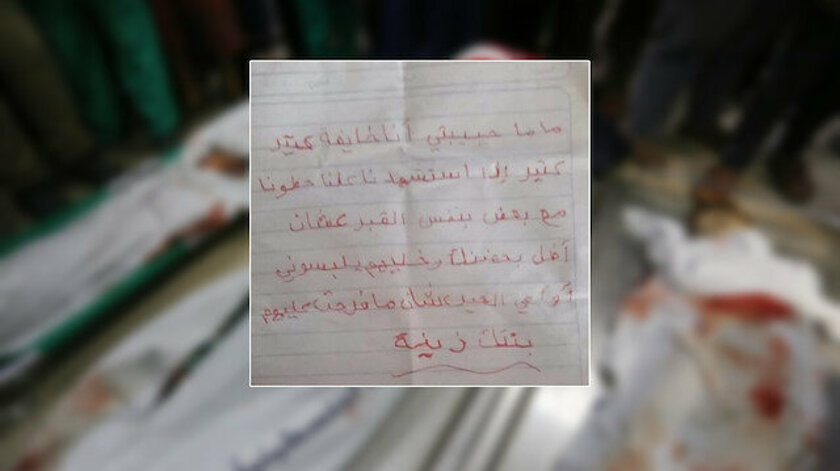 ماما حبيبتي أنا خايفة كتير
كتير إذا استشهدنا كلنا حطونا
مع بعض بنفس القبر عشان
أضل بحضنك وخليهم يلبسوني
أواعي العيد عشان ما فرحت عليهم
بنتك زينة